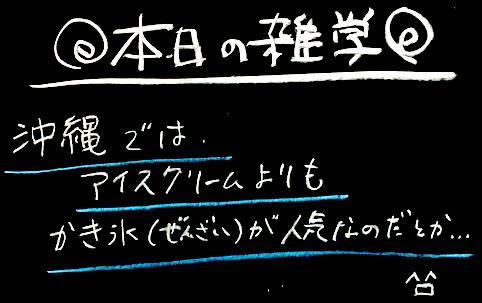 本日の雑学
沖縄では、
アイスクリームよりも
かき氷(ぜんざい)が人気なのだとか…